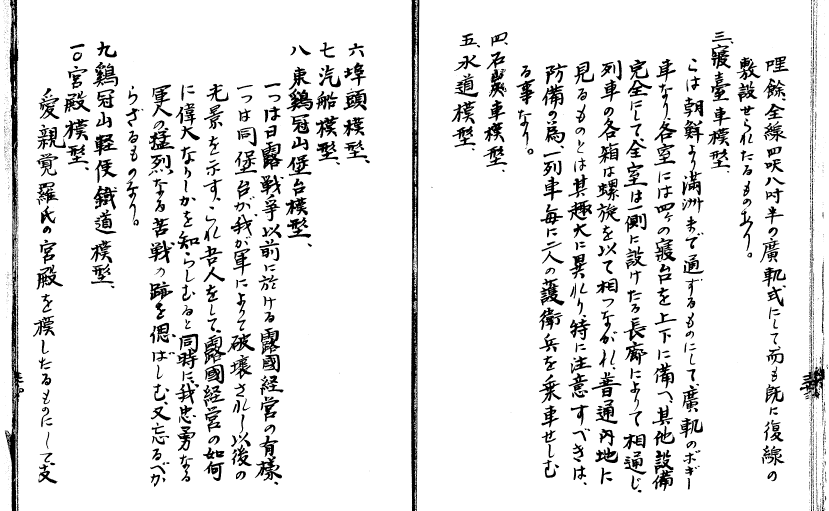 哩餘、全線四呎八吋半の廣軌式にして而も既に復線の
敷設せられたるものなり。
三、寢臺車模型、
こは朝鮮より滿洲まで通ずるものにして、廣軌のボギー
車なり、各室には四ヶの寢台を上下に備へ、其他設備
完全にして全室は一側に設けたる長廊によりて相通じ、
列車の各箱は螺旋を以て相つながれ、普通内地に
見るものとは其趣大に異れり、特に注意すべきは、
防備の爲、一列車毎に二人の護衛兵を乗車せしむ
る事なり。
四、石炭車模型、
五、水道模型、
六、埠頭模型、
七、汽船模型、
八、東鷄冠山堡台模型、
一つは日露戰爭以前に於ける露國経営の有樣、
一つは同堡台が、我が軍によりて破壊されし以後の
光景を示す、これ吾人をして、露國経営の如何
に偉大なりしかを知らしむると同時に、我忠勇なる
軍人の猛烈なる苦戰の跡を偲ばしむ、又忘るべか
らざるものなり。
九、鷄冠山軽便鐵道模型、
一〇、宮殿模型、
愛親覚羅氏の宮殿を模したるものにして、支